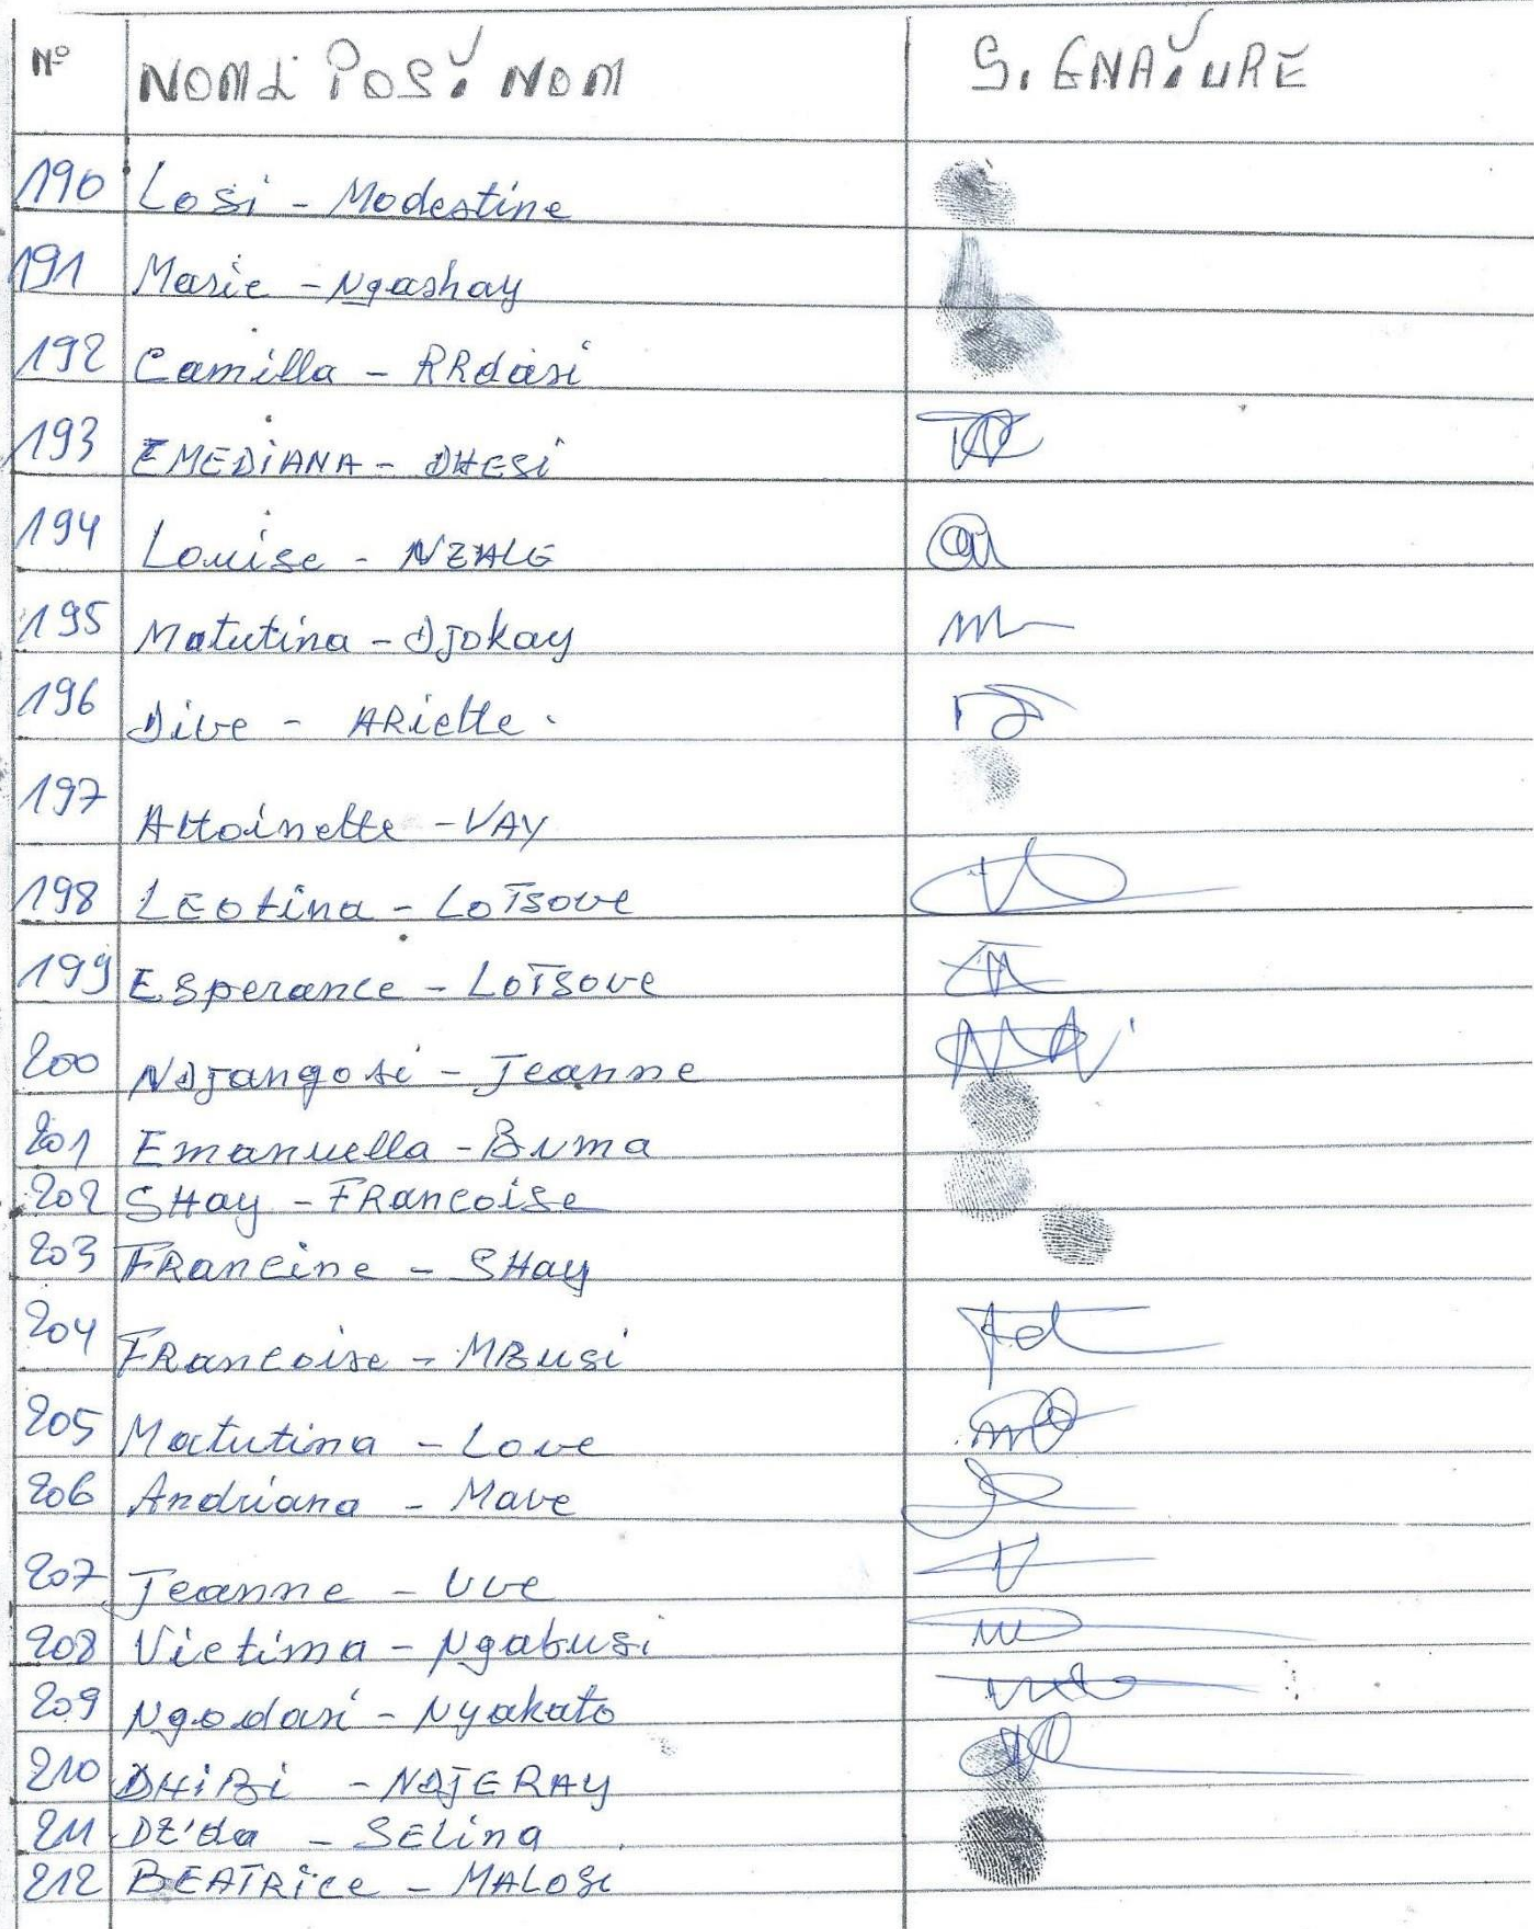 Nº NOM & POST NOM SIGNATURE
190 Losi - Modestine
191 Marie - Ngashay
192 Camilla - RRdasi
193 EMEDIANA - DHESi
194 Louise - NZALE
195 Matutina - Djokay
196 Dive - ARiette.
197 Attoinette - VAY
198 LEotina - LoTsove
199 Esperance - LoTsove
200 NDjangosi - Jeanne
201 Emanuella - Buma
202 SHay - FRancoise
203 FRancine - SHay
204 FRancoise - MBusi
205 Matutina - Love
206 Andriana - Mave
207 Jeanne - Uve
208 Victima - Ngabusi
209 Ngodasi - Nyakato
210 DHiBi - NDJERAY
211 DZ'da - SELina
212 BEATRice - MALOSi